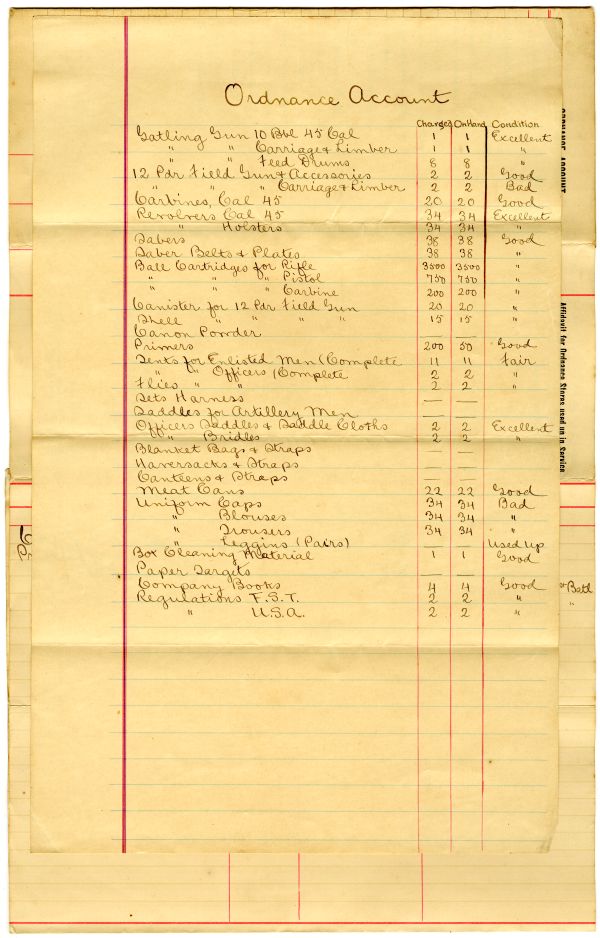 Ordnance Account
Charged OnHand Condition
Gatling Gun 10 Bbl 45 Cal 1 1 Excellent
" " Carriage & Limber 1 1 "
" " Feed Drums 8 8 "
12 Pdr Field Gun & Accessories 2 2 Good
" " " Carriage & Limber 2 2 Bad
Carbines, Cal 45 20 20 Good
Revolvers Cal 45 34 34 Excellent
" Holsters 34 34 "
Sabers 38 38 Good
Saber Belts & Plates 38 38 "
Ball Cartridges for Rifle 3500 3500 "
" " " Pistol 750 750 "
" " " Carbine 200 200 "
Canister for 12 Pdr Field Gun 20 20 "
Shell " " " " 15 15 "
Canon Powder — —
Primers 200 50 Good
Tents for Enlisted Men (Complete 11 11 Fair
" " Officers (Complete 2 2 "
Flies " " 2 2 "
Sets Harness — —
Saddles for Artillery Men — —
Officers Saddles & Saddle Cloths 2 2 Excellent
" Bridles 2 2 "
Blanket Bags & Straps — —
Haversacks & Straps — —
Canteens & Straps — —
Meat Cans 22 22 Good
Uniform Caps 34 34 Bad
" Blouses 34 34 "
" Trousers 34 34 "
" Leggins (Pairs) — — Used Up
Box Cleaning Material 1 1 Good
Paper Targits — —
Company Books 4 4 Good
Regulations F.S.T. 2 2 "
" U.S.A. 2 2 "
ORDNANCE ACCOUNT
Affidavit for Ordnance Stores used up in Service
st Batl
"